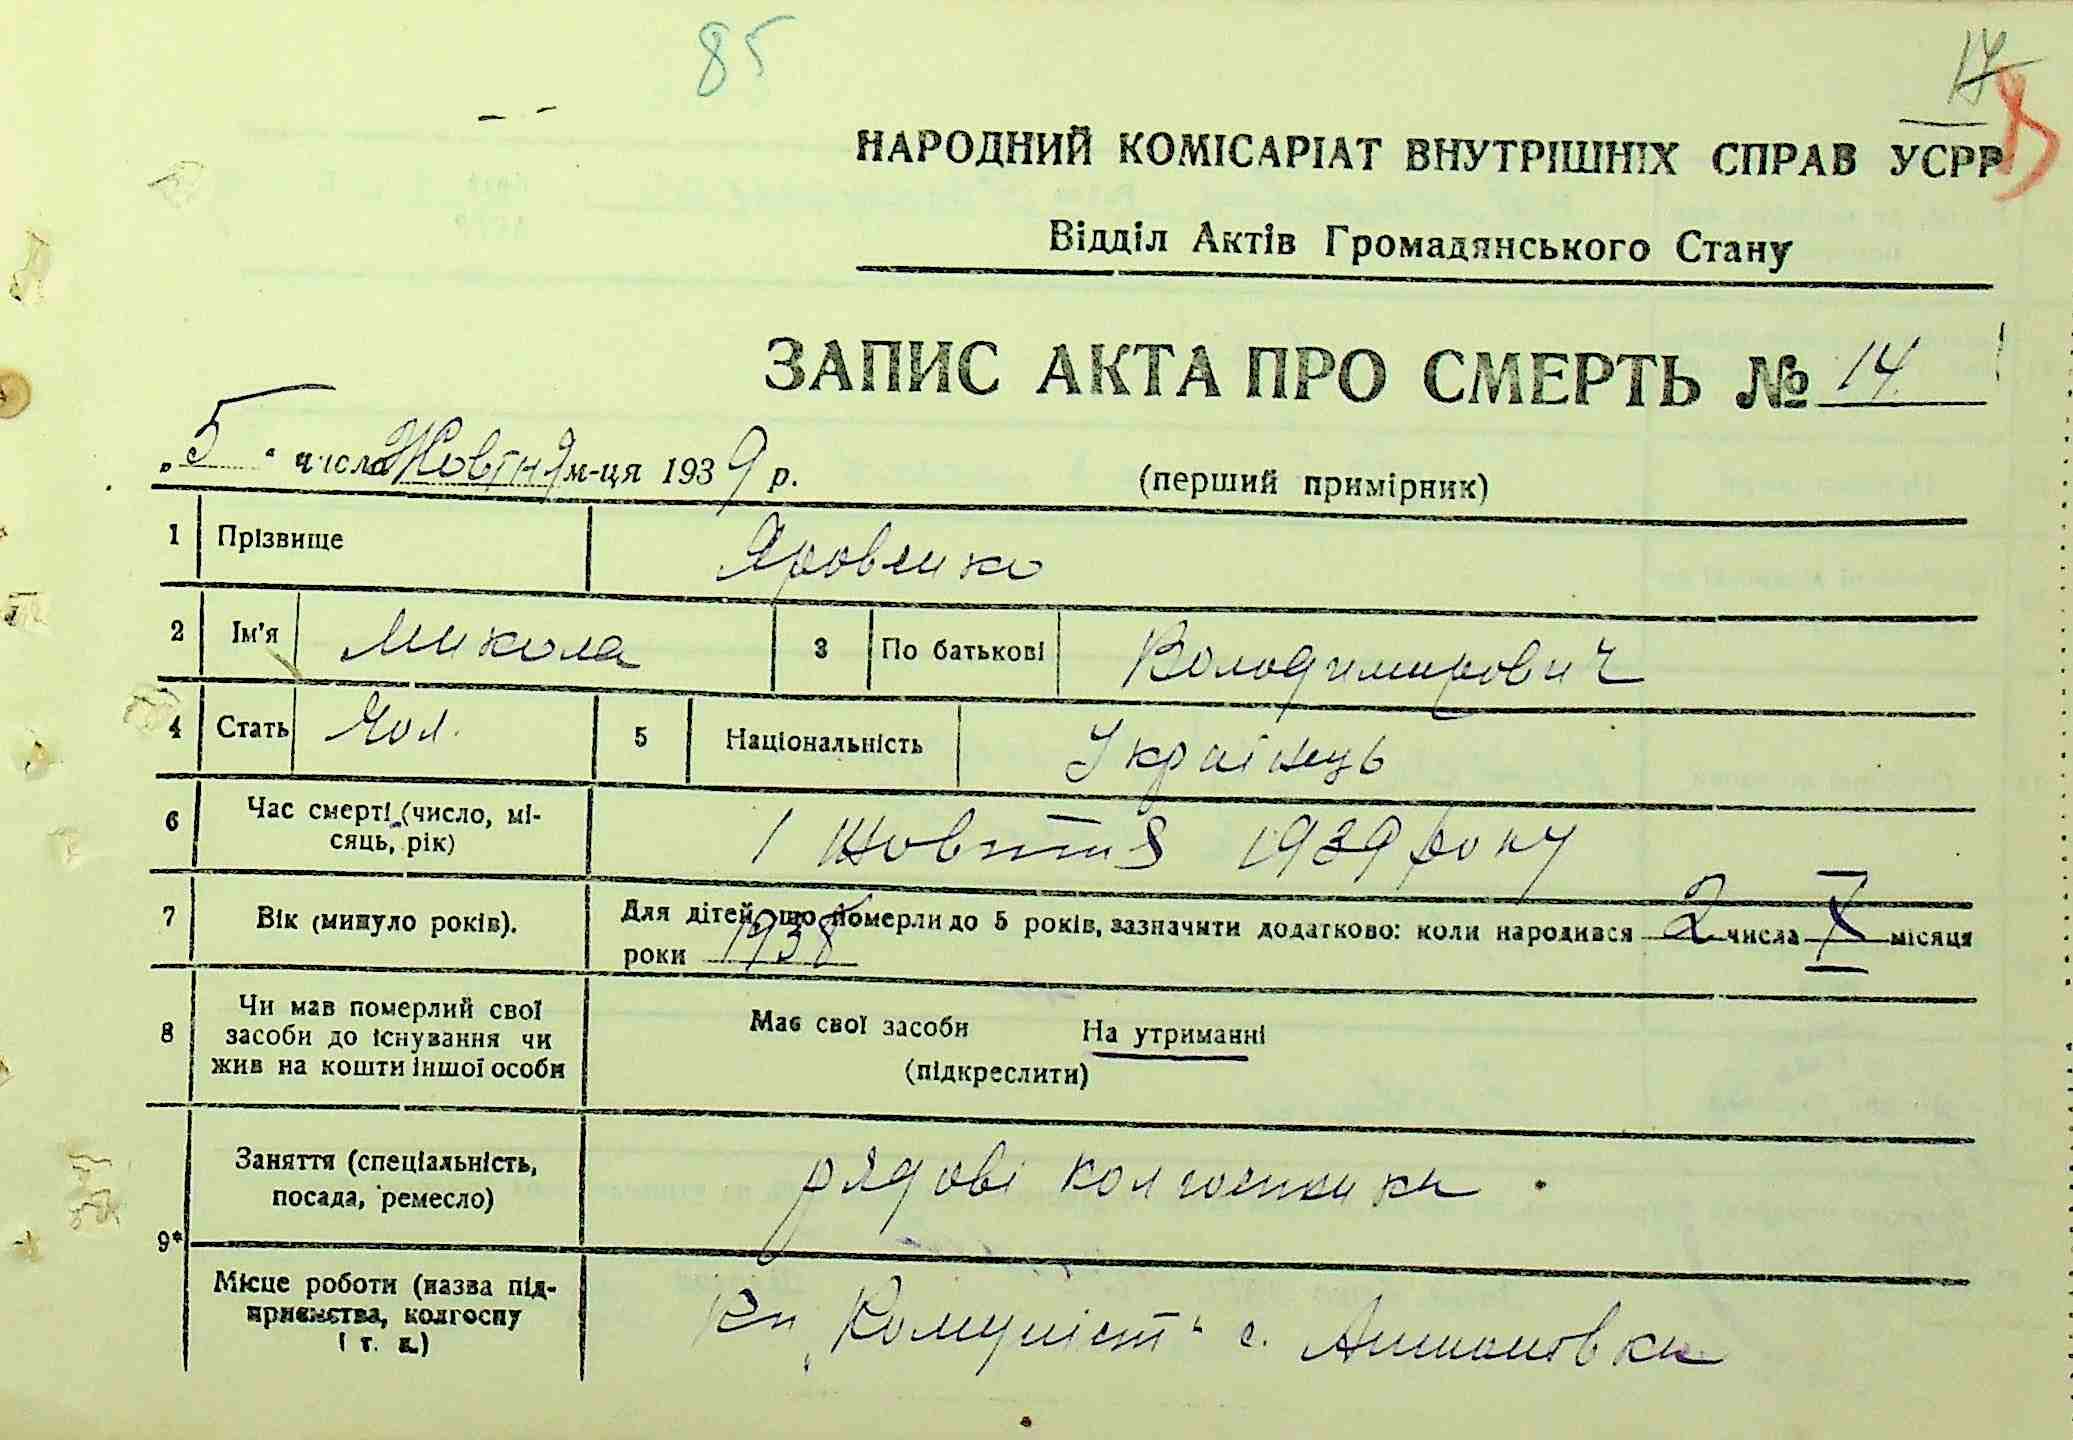 85
17
НАРОДНИЙ КОМІСАРІАТ ВНУТРІШНІХ СПРАВ УСРР
Відділ Актів Громадянського Стану
ЗАПИС АКТА ПРО СМЕРТЬ № 14
„5“ числа Жовтня м-ця 1939 р. (перший примірник)
1 Прізвище Яровенко
2 Ім'я Микола 3 По батькові Володимирович
4 Стать Чол. 5 Національність Українець
6 Час смерті (число, мі-
сяць, рік) 1 Жовтня 1939 року
7 Вік (минуло років). Для дітей, що померли до 5 років, зазначити додатково: коли народився 2 числа X місяця
роки 1938
8 Чи мав померлий свої
засоби до існування чи
жив на кошти іншої особи
Має свої засоби На утриманні
(підкреслити)
9* Заняття (спеціальність,
посада, ремесло) рядові колгоспники
Місце роботи (назва під-
приємства, колгоспу
і т. д.) Кп „Комуніст“ с.